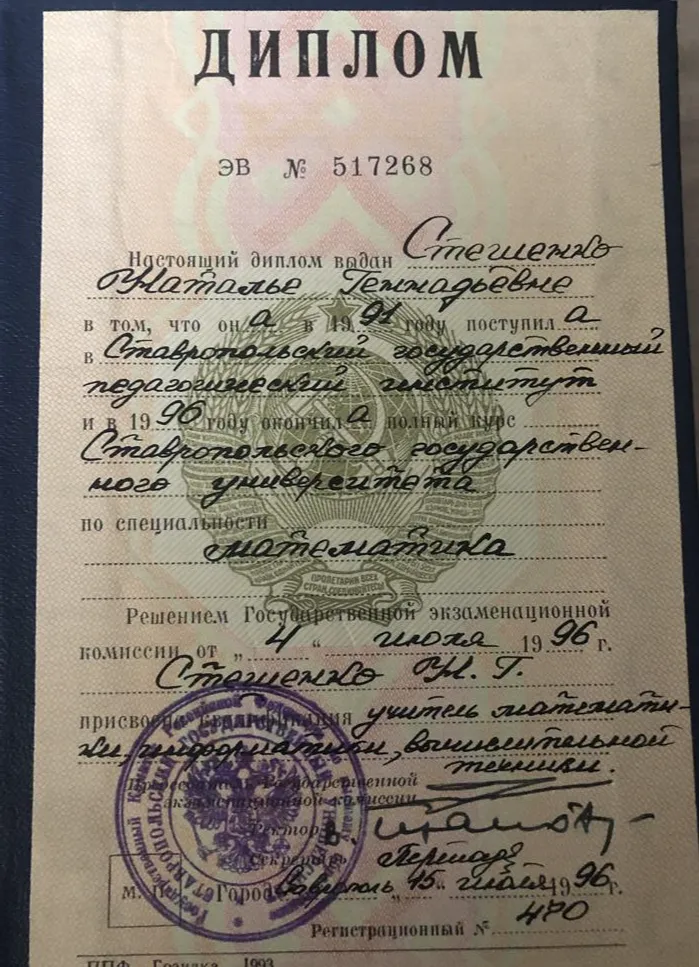 ДИПЛОМ
ЭВ № 517268
Настоящий диплом выдан Стешенко
Наталье Геннадьевне
в том, что он а в 1991 году поступил а
в Ставропольский государственный
педагогический институт
и в 1996 году окончил а полный курс
Ставропольского государствен-
ного университета
по специальности
математика
ПРОЛЕТАРИИ ВСЕХ
СТРАН, СОЕДИНЯЙТЕСЬ!
Решением Государственной экзаменационной
комиссии от „4“ июня 1996 г.
Стешенко Н. Г.
присвоена квалификация учитель математи-
ки, информатики, вычислительной
техники.
Председатель Государственной
экзаменационной комиссии
Ректор
Секретарь
М. П. Город Ставрополь „15“ 1996 г.
Регистрационный № 470
ППФ Гознака 1993